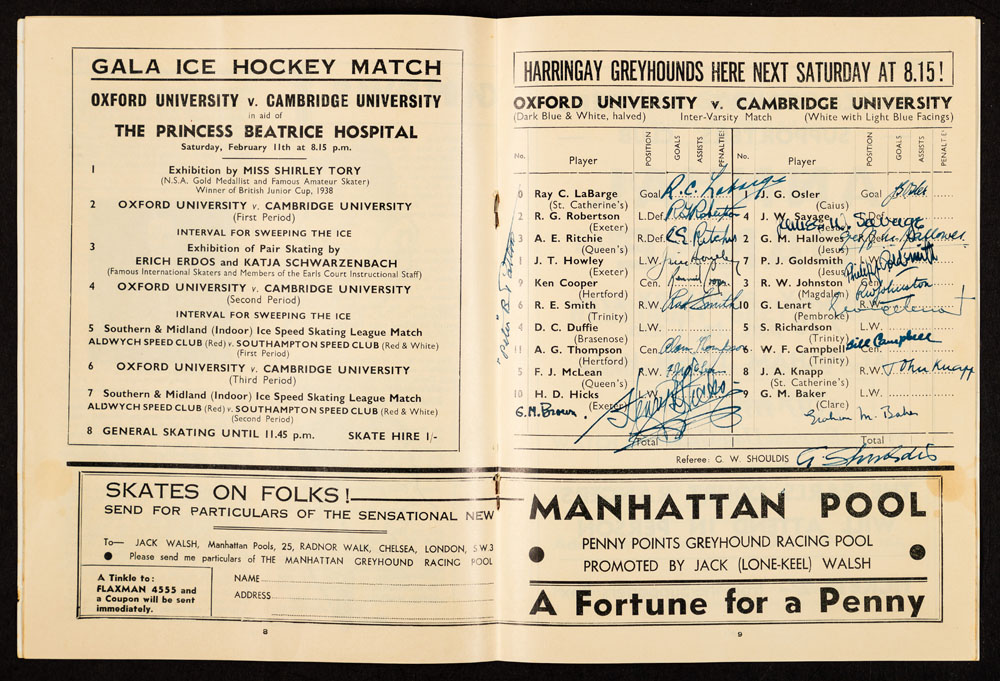 GALA ICE HOCKEY MATCH
OXFORD UNIVERSITY v. CAMBRIDGE UNIVERSITY
in aid of
THE PRINCESS BEATRICE HOSPITAL
Saturday, February 11th at 8.15 p.m.
1 Exhibition by MISS SHIRLEY TORY
(N.S.A. Gold Medallist and Famous Amateur Skater)
Winner of British Junior Cup, 1938
2 OXFORD UNIVERSITY v. CAMBRIDGE UNIVERSITY
(First Period)
INTERVAL FOR SWEEPING THE ICE
3 Exhibition of Pair Skating by
ERICH ERDOS and KATJA SCHWARZENBACH
(Famous International Skaters and Members of the Earls Court Instructional Staff)
4 OXFORD UNIVERSITY v. CAMBRIDGE UNIVERSITY
(Second Period)
INTERVAL FOR SWEEPING THE ICE
5 Southern & Midland (Indoor) Ice Speed Skating League Match
ALDWYCH SPEED CLUB (Red) v. SOUTHAMPTON SPEED CLUB (Red & White)
(First Period)
6 OXFORD UNIVERSITY v. CAMBRIDGE UNIVERSITY
(Third Period)
7 Southern & Midland (Indoor) Ice Speed Skating League Match
ALDWYCH SPEED CLUB (Red) v. SOUTHAMPTON SPEED CLUB (Red & White)
(Second Period)
8 GENERAL SKATING UNTIL 11.45 p.m. SKATE HIRE 1/-
SKATES ON FOLKS!
SEND FOR PARTICULARS OF THE SENSATIONAL NEW
To— JACK WALSH, Manhattan Pools, 25, RADNOR WALK, CHELSEA, LONDON, S.W.3
● Please send me particulars of THE MANHATTAN GREYHOUND RACING POOL
A Tinkle to:
FLAXMAN 4555 and
a Coupon will be sent
immediately.
NAME
ADDRESS
8
HARRINGAY GREYHOUNDS HERE NEXT SATURDAY AT 8.15!
OXFORD UNIVERSITY v. CAMBRIDGE UNIVERSITY
(Dark Blue & White, halved) Inter-Varsity Match (White with Light Blue Facings)
No. Player POSITION GOALS ASSISTS PENALTIES No. Player POSITION GOALS ASSISTS PENALTIES
0 Ray C. LaBarge Goal R.C. Labarge
(St. Catherine's)
2 R. G. Robertson L.Def.
(Exeter)
3 A. E. Ritchie R.Def.
(Queen's)
J. T. Howley L.W.
(Exeter)
9 Ken Cooper Cen.
(Hertford)
6 R. E. Smith R.W.
(Trinity)
4 D. C. Duffie L.W.
(Brasenose)
A. G. Thompson Cen. Alan Thompson
(Hertford)
5 F. J. McLean R.W.
(Queen's)
10 H. D. Hicks L.W. Henry D. Hicks
(Exeter)
G. M. Brown.
Total
J. G. Osler Goal
(Caius)
4 J. W. Savage Def.
(Jesus) James W. Savage
2 G. M. Hallowes
(Jesus)
7 P. J. Goldsmith L.W.
(Jesus) Philip Goldsmith
3 R. W. Johnston Cen.
(Magdalen) R W Johnston
10 G. Lenart R.W.
(Pembroke)
5 S. Richardson L.W.
(Trinity)
6 W. F. Campbell Cen. Bill Campbell
(Trinity)
8 J. A. Knapp R.W. John Knapp
(St. Catherine's)
9 G. M. Baker L.W.
(Clare)
Graham M. Baker
Total
Referee: G. W. SHOULDIS G. Shouldis
MANHATTAN POOL
● PENNY POINTS GREYHOUND RACING POOL ●
PROMOTED BY JACK (LONE-KEEL) WALSH
A Fortune for a Penny
9